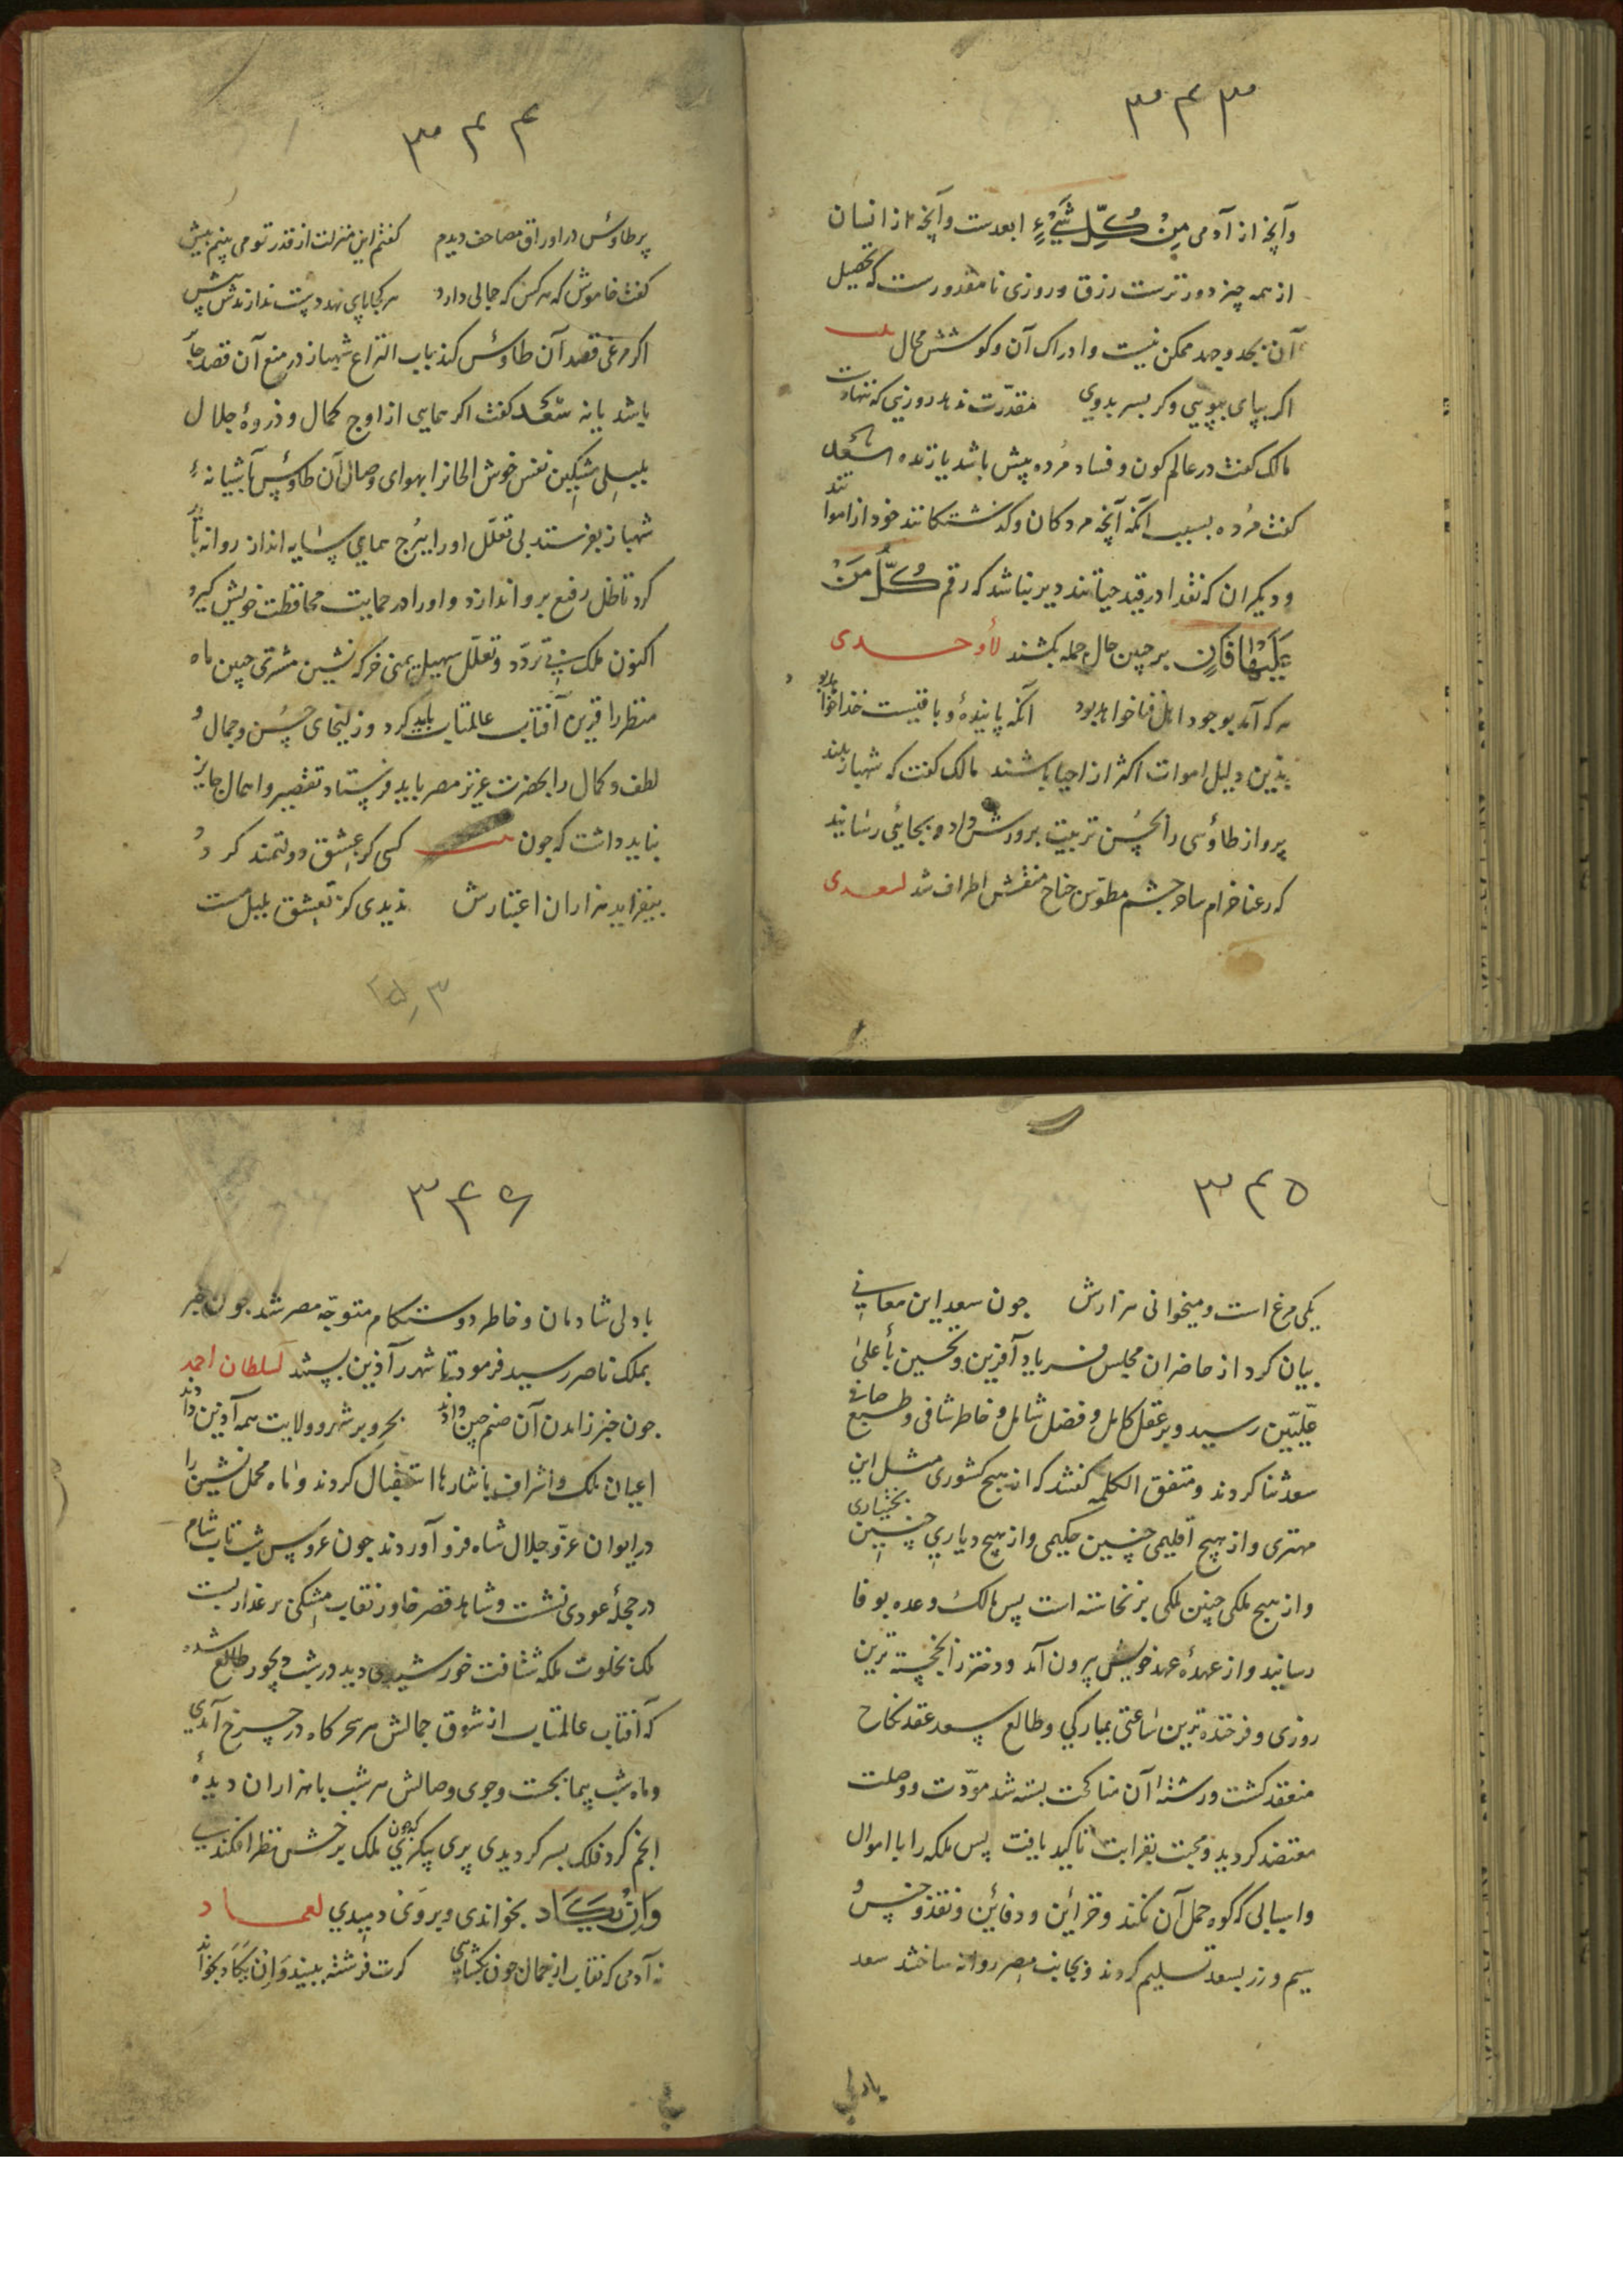 ۳۴۳
وآنچه از آدمی مِنْ كُلِّ شَيْءٍ ابعدست وآنچه از انسان
از همه چیز دورترست رزق وروزی نامقدورست که تحصیل
آن بجد وجهد ممکن نیست وادراک آن وکوشش محال
اکر بپای بپویی وکر بسر بدوی مقدّرت ندهد روزیی که ننهادت
مالک کفت در عالم کون وفساد مُرده بیش باشد یا زنده سَعد
کفت مُرده بسبب آنکه آنچه مردکان وکذشتکانند خود از امواتند
ودیکران که نقدا در قید حیاتند دیر نباشد که رقم كُلُّ مَنْ
عَلَيْهَا فَانٍ بر جبین حال جمله بکشند لأوحدی
هر که آمد بوجود اهل فنا خواهد بود آنکه پاینده وباقیست خدا خواهد بود
بذین دلیل اموات اکثر از احیا باشند مالک کفت که شهباز بلند
پرواز طاؤسی را بحُسن تربیت برورش داده بجائی رسانید
که رعنا خرام سادو جشم مطوّس جناح منقش اطراف شد لسعدی
۳۴۴
پر طاوُس در اوراق مصاحف دیدم کفتم این منزلت از قدر تو می بینم بیش
کفت خاموش که هر کس که جمالی دارد هر کجا پای نهد دست ندارندش پیش
اکر مرغی قصد آن طاوُس کند بباب انتزاع شهباز در منع آن قصد جائز
باشد یا نه سَعد کفت اکر همایی از اوج کمال وذروهٔ جلال
بلبلی مشکین نفس خوش الحانرا بهوای وصال آن طاوُس بآشیانهٔ
شهباز بفرستد بی تعلّل اورا ببُرج همای سایه انداز روانه باید
کرد تا ظل رفیع برو اندازد واورا در حمایت محافظت خویش کیرد
اکنون ملک بی تردّد وتعلّل سهیل یمنی خرکه نشین مشتری جبین ماه
منظر را قرین آفتاب عالمتاب باید کرد وزلیخای حُسن وجمال و
لطف وکمال را بحضرت عزیز مصر باید فرستاد وتقصیر واهمال جایز
نباید داشت که جون کسی کز عِشق دولتمند کردد
بیفزاید هزاران اعتبارش ندیدی کز تعشق بلبل مست
۳۴۵
یکی مرغ است ومیخوانی هزارش جون سعد این معانی
بیان کرد از حاضران مجلس فریاد آفرین وتحسین بأعلیٰ
علّیّین رسید وبر عقل کامل وفضل شامل وخاطر شافی وطبع صافی
سعد ثنا کردند ومتفق الکلمه کفتند که از هیچ کشوری مثل این
مهتری واز هیچ اقلیمی چنین حکیمی واز هیچ دیاری چنین بختیاری
واز هیچ ملکی چنین ملکی برنخاسته است پس مالک وعده بوفا
رسانید واز عهدهٔ عهد خویش بیرون آمد ودختر را بخجسته ترین
روزی وفرخنده ترین ساعتی بمبارکی وطالع سعد عقد نکاح
منعقد کشت ورشتهٔ آن مناکحت بسته شد مودّت ووصلت
معتضد کردید ومحبت بقرابت تاکید یافت پس ملکه را با اموال
واسبابی که کوه حمل آن نکند وخزائن ودفائن ونقد وجنس و
سیم وزر بسعد تسلیم کردند وبجانب مصر روانه ساختند سعد
بادلی
۳۴۶
بادلی شادمان وخاطر دوستکام متوجّه مصر شد جون خبر
بملک ناصر رسید فرمود تا شهر را آذین بستند لسلطان احمد
جون خبر زامدن آن صنم چین دادند بحر وبر شهر وولایت همه آذین دادند
اعیان ملک واشراف با نثارها استقبال کردند وماه محمل نشین را
در ایوان عزّ وجلال شاه فرو آوردند جون عروس شب تاب شام
در حجلهٔ عودی نشست وشاهد قصر خاور نقاب مشکین بر عذار بست
ملک بخلوت ملکه شتافت خورشیدی دید در شب دیجور طالع شده
که آفتاب عالمتاب از شوق جمالش هر سحرکاه در چرخ آمدی
وماه شب پیما بجست وجوی وصالش هر شب با هزاران دیدهٔ
انجم کرد فلک بسر کردیدی پری پیکری که جون ملک بر خش نظر افکندی
وَاِنْ يَكَاد بخواندی وبروی دمیدی لعماد
نه آدمی که نقاب از جمال جون بکشایی کرت فرشته ببیند وَاِنْ يَكَاد بخواند